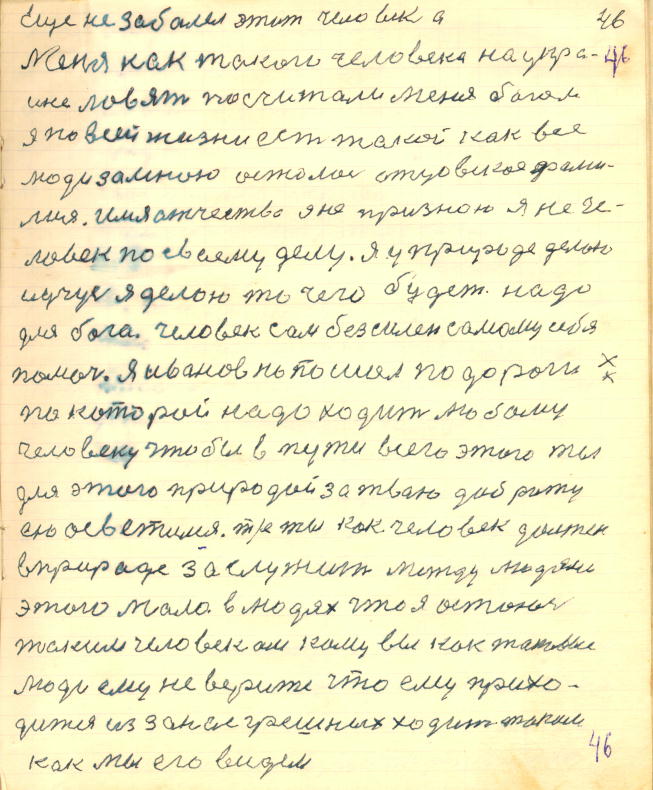 Еще не заболел этот человек а 46
Меня как такого человека на укра- 46
ине ловят посчитали меня богом
я по всей жизни ест такой как все
люди замною осталос отцовская фами-
лия. имя отчества я не признаю я не че-
ловек по своему делу. я у природе делаю
и учус я делаю то чего будет надо
для бога. человек сам безсилен самому себя
помоч. я иванов но пошел по дороги
по которой надо ходит любому
человеку чтобы в пути всего этого ты
для этого природой за твою доброту
ею осветился. тже ты как человек должен
в природе заслужит между людями
этого мало в людях что я остаюс
таким человеком кому вы как таковые
люди ему не верите что ему прихо-
дится из за нас грешных ходит таким
как мы его видем 46